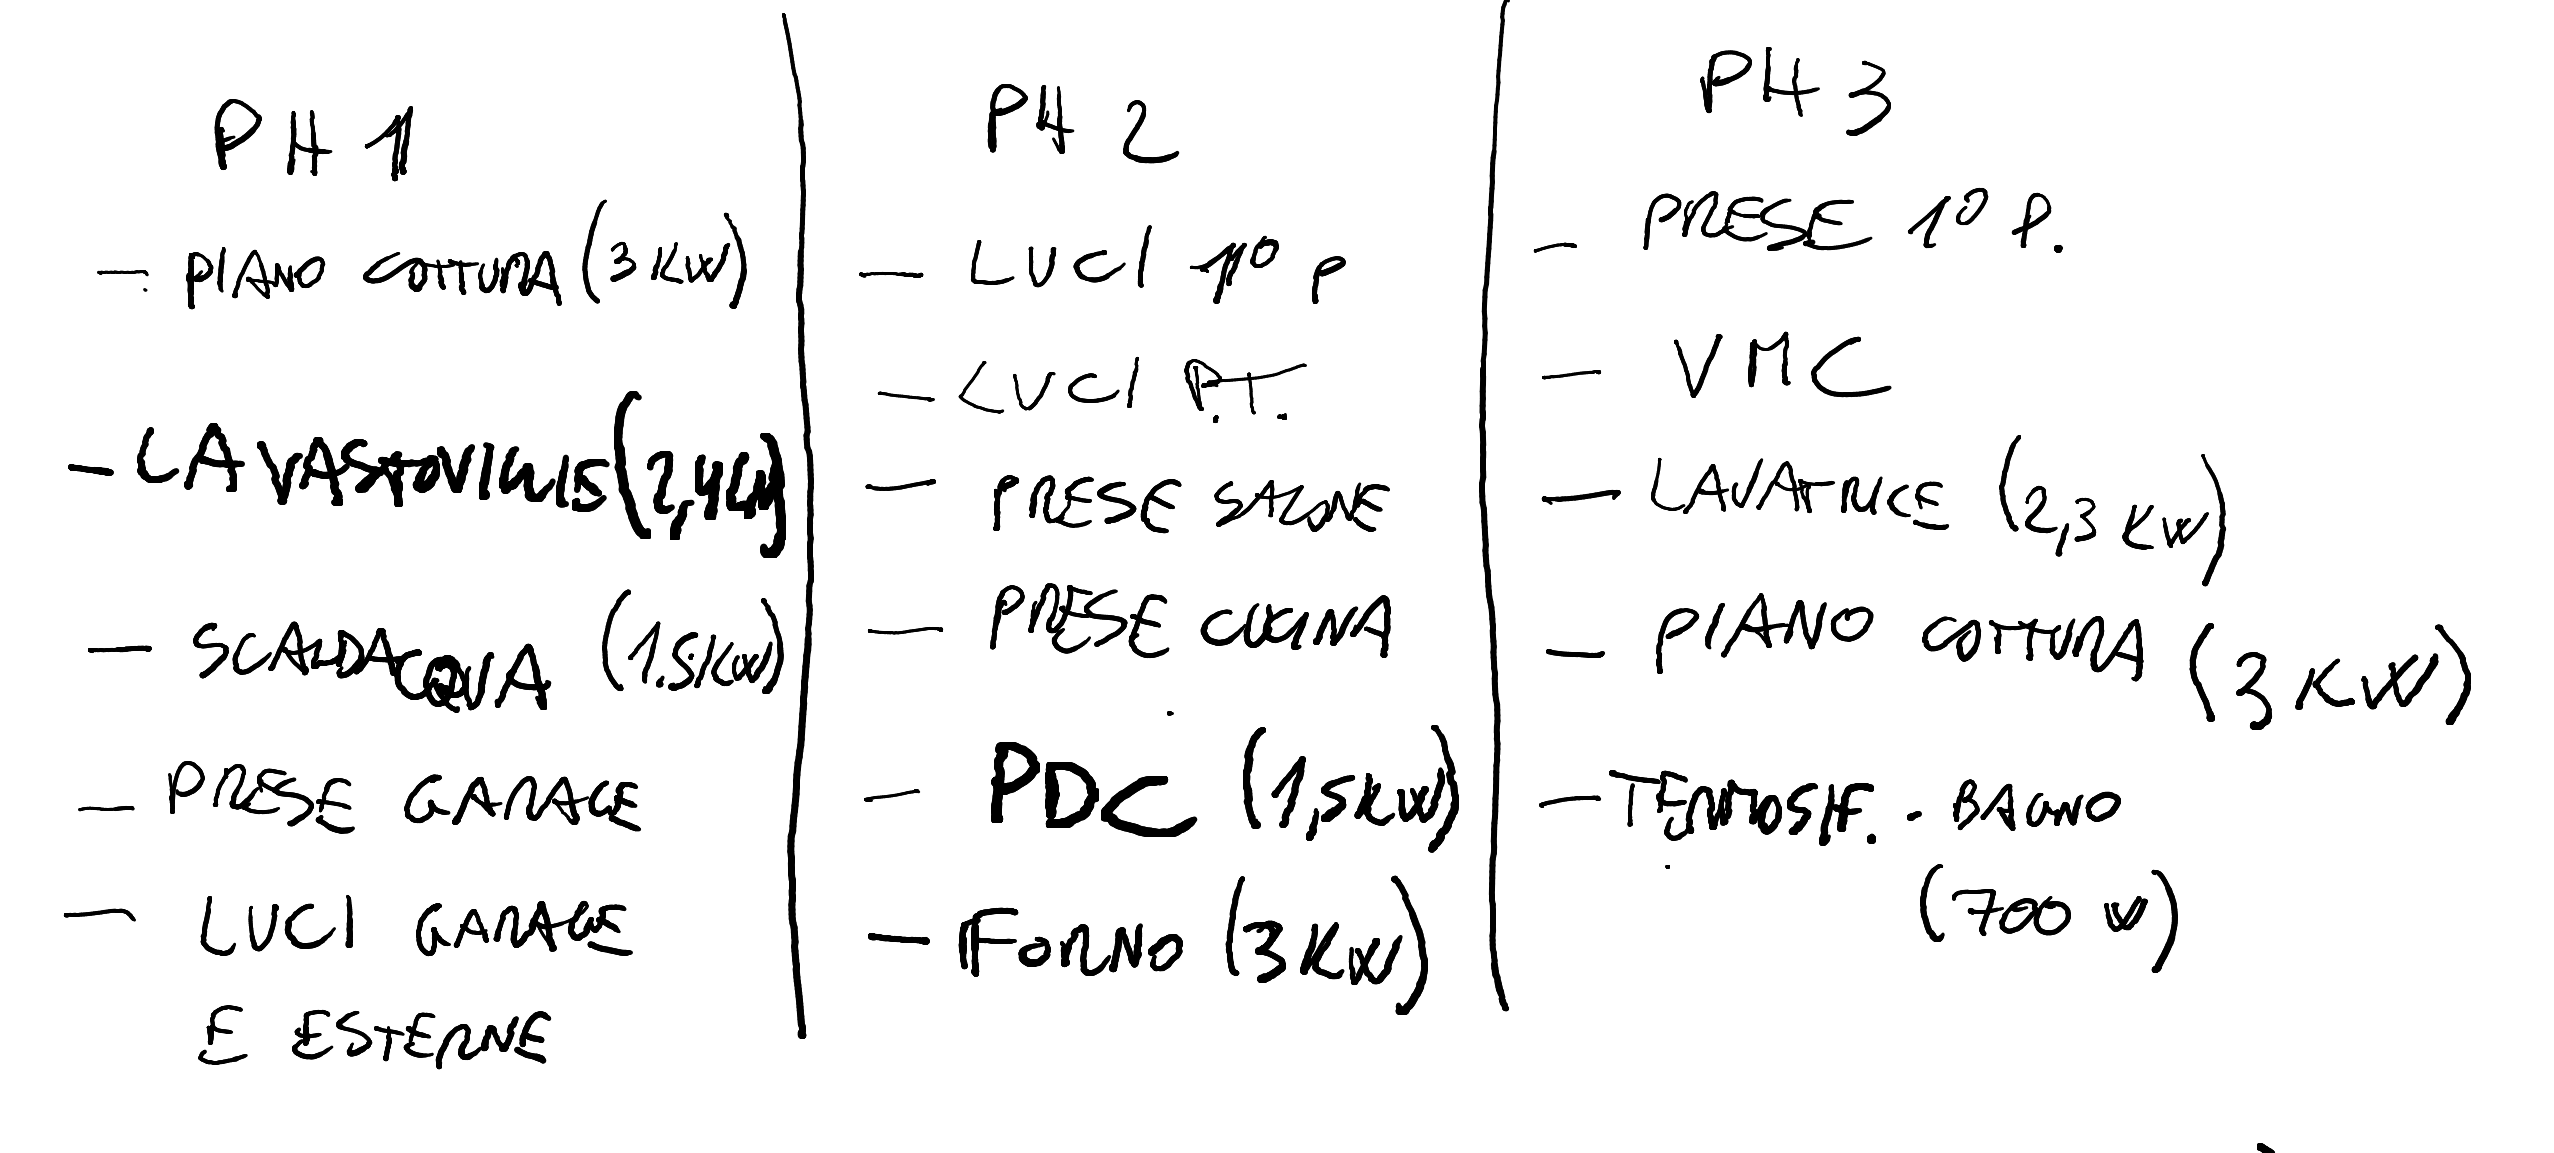 PH 1
- PIANO COTTURA (3 KW)
- LAVASTOVIGLIE (2,4KW)
- SCALDACQUA (1.5KW)
- PRESE GARAGE
- LUCI GARAGE
E ESTERNE
PH 2
- LUCI 1° P
- LUCI P.T.
- PRESE SALONE
- PRESE CUCINA
- PDC (1,5KW)
- FORNO (3KW)
PH 3
- PRESE 1° P.
- VMC
- LAVATRICE (2,3 KW)
- PIANO COTTURA (3 KW)
- TERMOSIF. - BAGNO
(700 W)